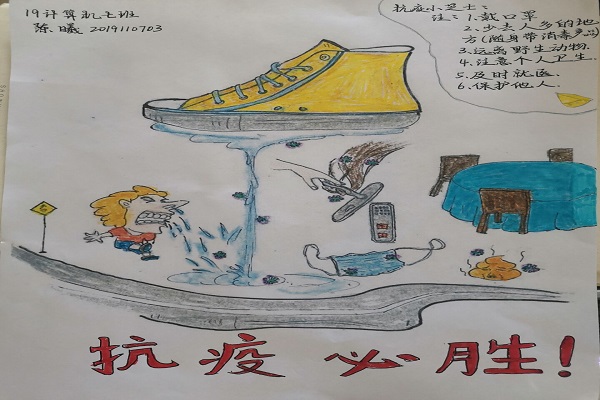 19计算机七班
陈曦 2019110703
抗疫小芝士:
注:1.戴口罩
2.少去人多的地
方(随身带消毒产品)
3.远离野生动物.
4.注意个人卫生.
5.及时就医.
6.保护他人.
抗疫必胜!